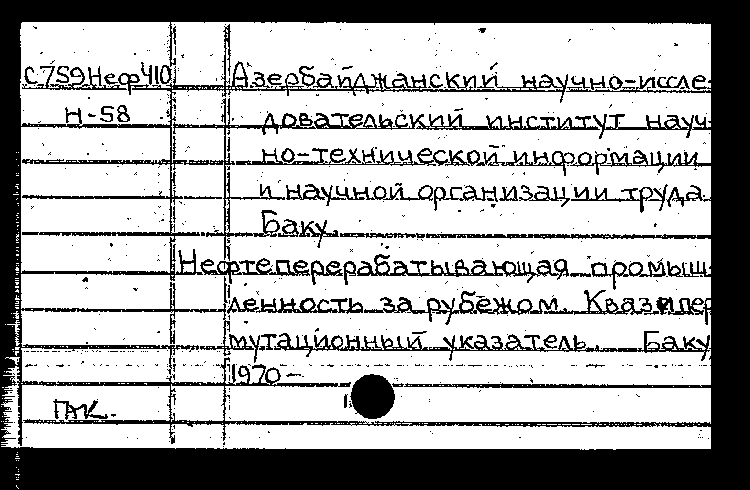 С759Неф410 Азербайджанский научно-иссле-
Н-58 довательский институт науч-
но-технической информации
и научной организации труда.
Баку.
Нефтеперерабатывающая промыш-
ленность за рубежом. Квазипер
мутационный указатель. Баку
1970-